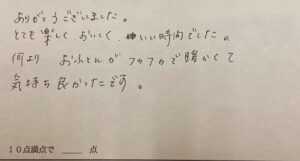 ありがとうございました。
とても楽しく、おいしく、いい時間でした。
何より おふとんがフカフカで暖かくて
気持ち良かったです。
10点満点で ____ 点